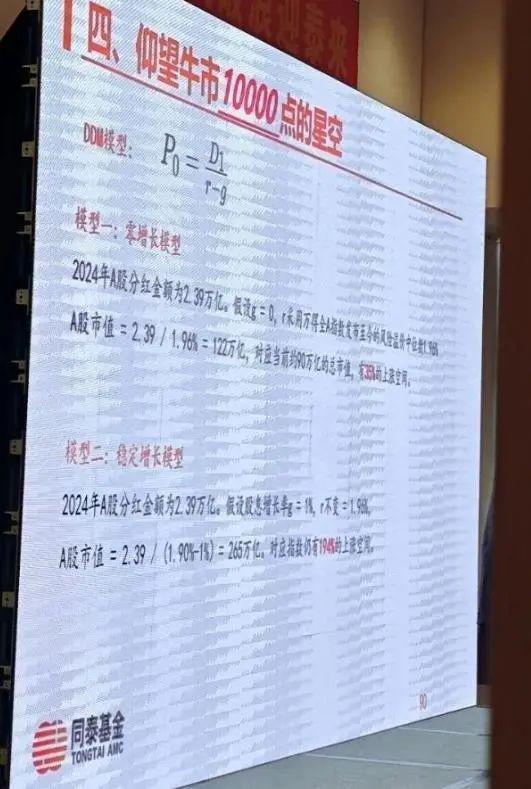 四、仰望牛市10000点的星空
DDM模型: P₀ = D1 / r-g
模型一：零增长模型
2024年A股分红金额为2.39万亿。假设g = 0, r采用万得全A指数发布至今的风险溢价中位数1.96%
A股市值 = 2.39 / 1.96% = 122万亿, 对应当前约90万亿的总市值, 有35%的上涨空间。
模型二：稳定增长模型
2024年A股分红金额为2.39万亿。假设股息增长率g = 1%, r不变 = 1.96%,
A股市值 = 2.39 / (1.90%-1%) = 265万亿。对应指数仍有194%的上涨空间。
90
同泰基金
TONGTAI AMC